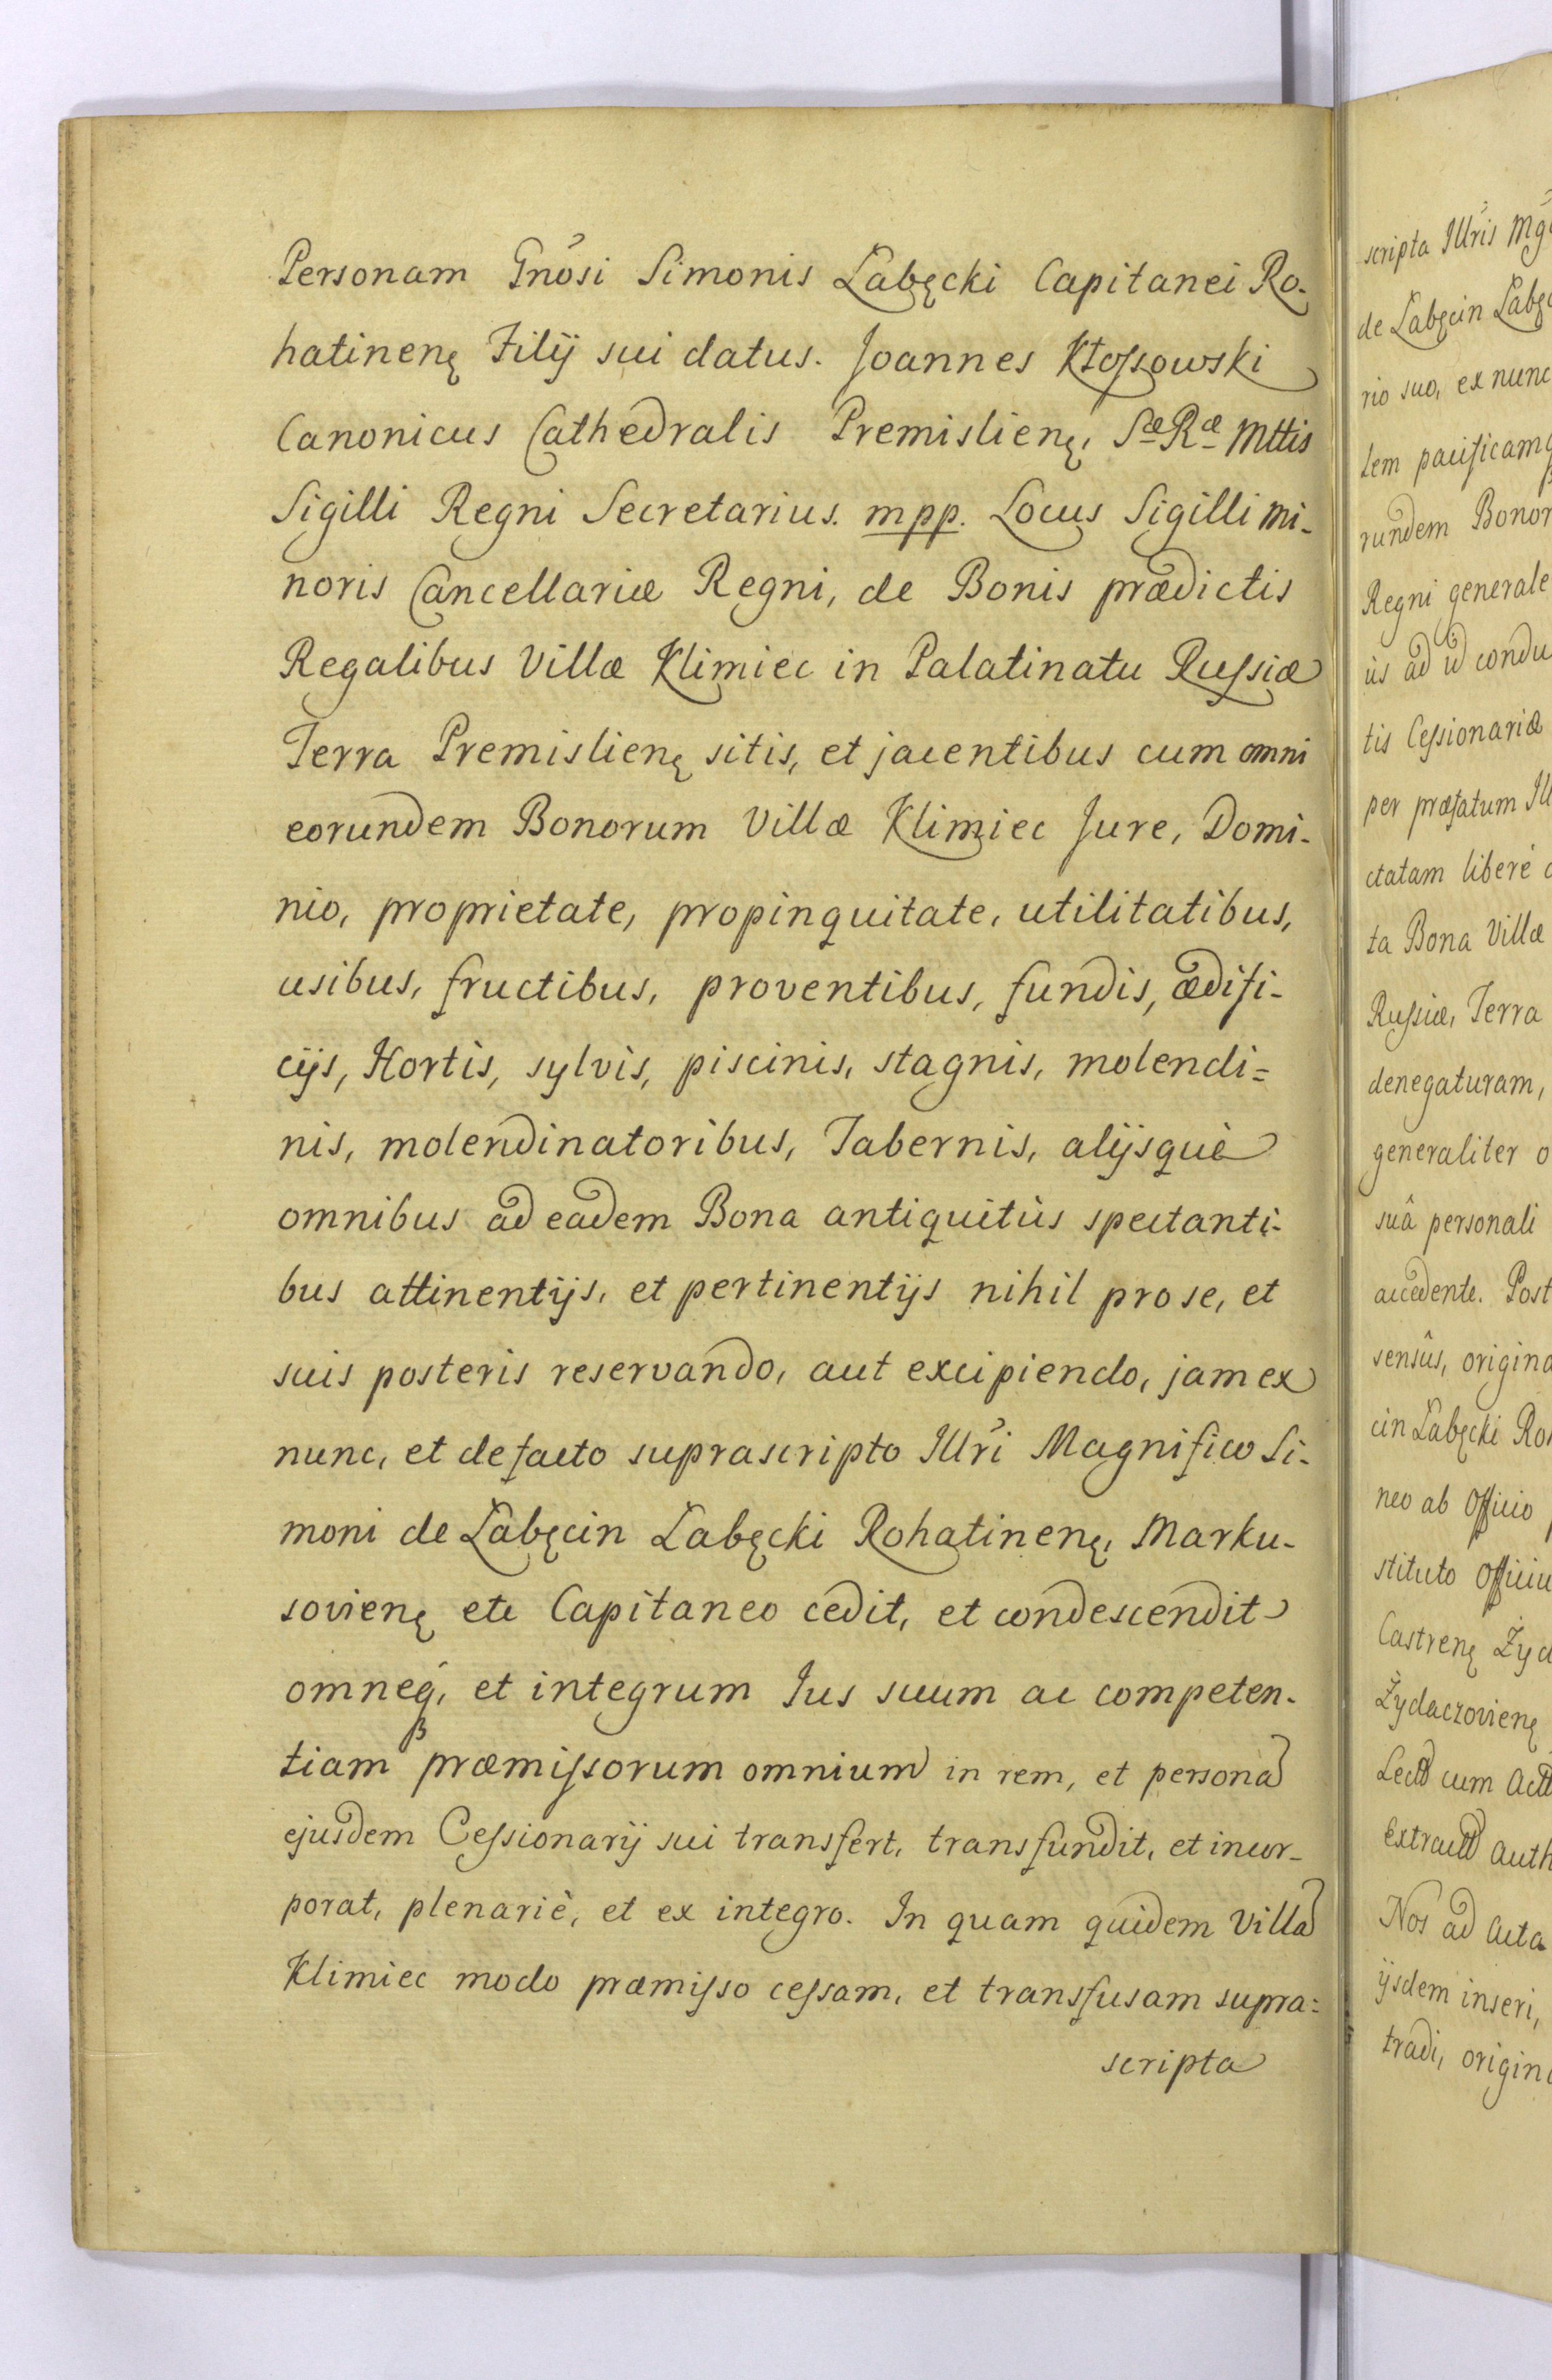 Personam Gnosi Simonis Łabęcki Capitanei Ro-
hatinenę Filij sui datus. Joannes Kłossowski
Canonicus Cathedralis Premislienę, Sæ Ræ Mttis
Sigilli Regni Secretarius. mpp. Locus Sigilli mi-
noris Cancellariæ Regni, de Bonis prædictis
Regalibus Villæ Klimiec in Palatinatu Russiæ
Terra Premislienę sitis, et jacentibus cum omni
eorundem Bonorum Villæ Klimiec Jure, Domi-
nio, proprietate, propinquitate, utilitatibus,
usibus, fructibus, proventibus, fundis, ædifi-
cijs, Hortis, sylvis, piscinis, stagnis, molendi=
nis, molendinatoribus, Tabernis, alijsquè
omnibus ad eadem Bona antiquitùs spectanti-
bus attinentijs, et pertinentijs nihil pro se, et
suis posteris reservando, aut excipiendo, jam ex
nunc, et de facto suprascripto Illri Magnifico Si-
moni de Łabęcin Łabęcki Rohatinenę, Marku-
sovienę etc Capitaneo cedit, et condescendit
omneq, et integrum Jus suum ac competen-
tiam præmissorum omnium in rem, et persona
ejusdem Cessionarij sui transfert, transfundit, et incor-
porat, plenariè, et ex integro. In quam quidem Villa
Klimiec modo præmisso cessam, et transfusam supra=
scripta
scripta Illris Mg
de Łabęcin Łabę
rio suo, ex nunc
lem pacificamq
rundem Bonor
Regni generale
ùs ad id condu
tis Cessionariæ
per præfatum Ill
ctatam liberè
ta Bona Villæ
Russiæ, Terra
denegaturam,
generaliter o
suâ personali
accedente. Post
sensûs, origina
cin Łabęcki Ro
neo ab Officio
stituto Officiu
Castrenę Żyd
Żydaczovienę
cum
auth
Nos ad Acta
ijsdem inseri,
tradi, origina